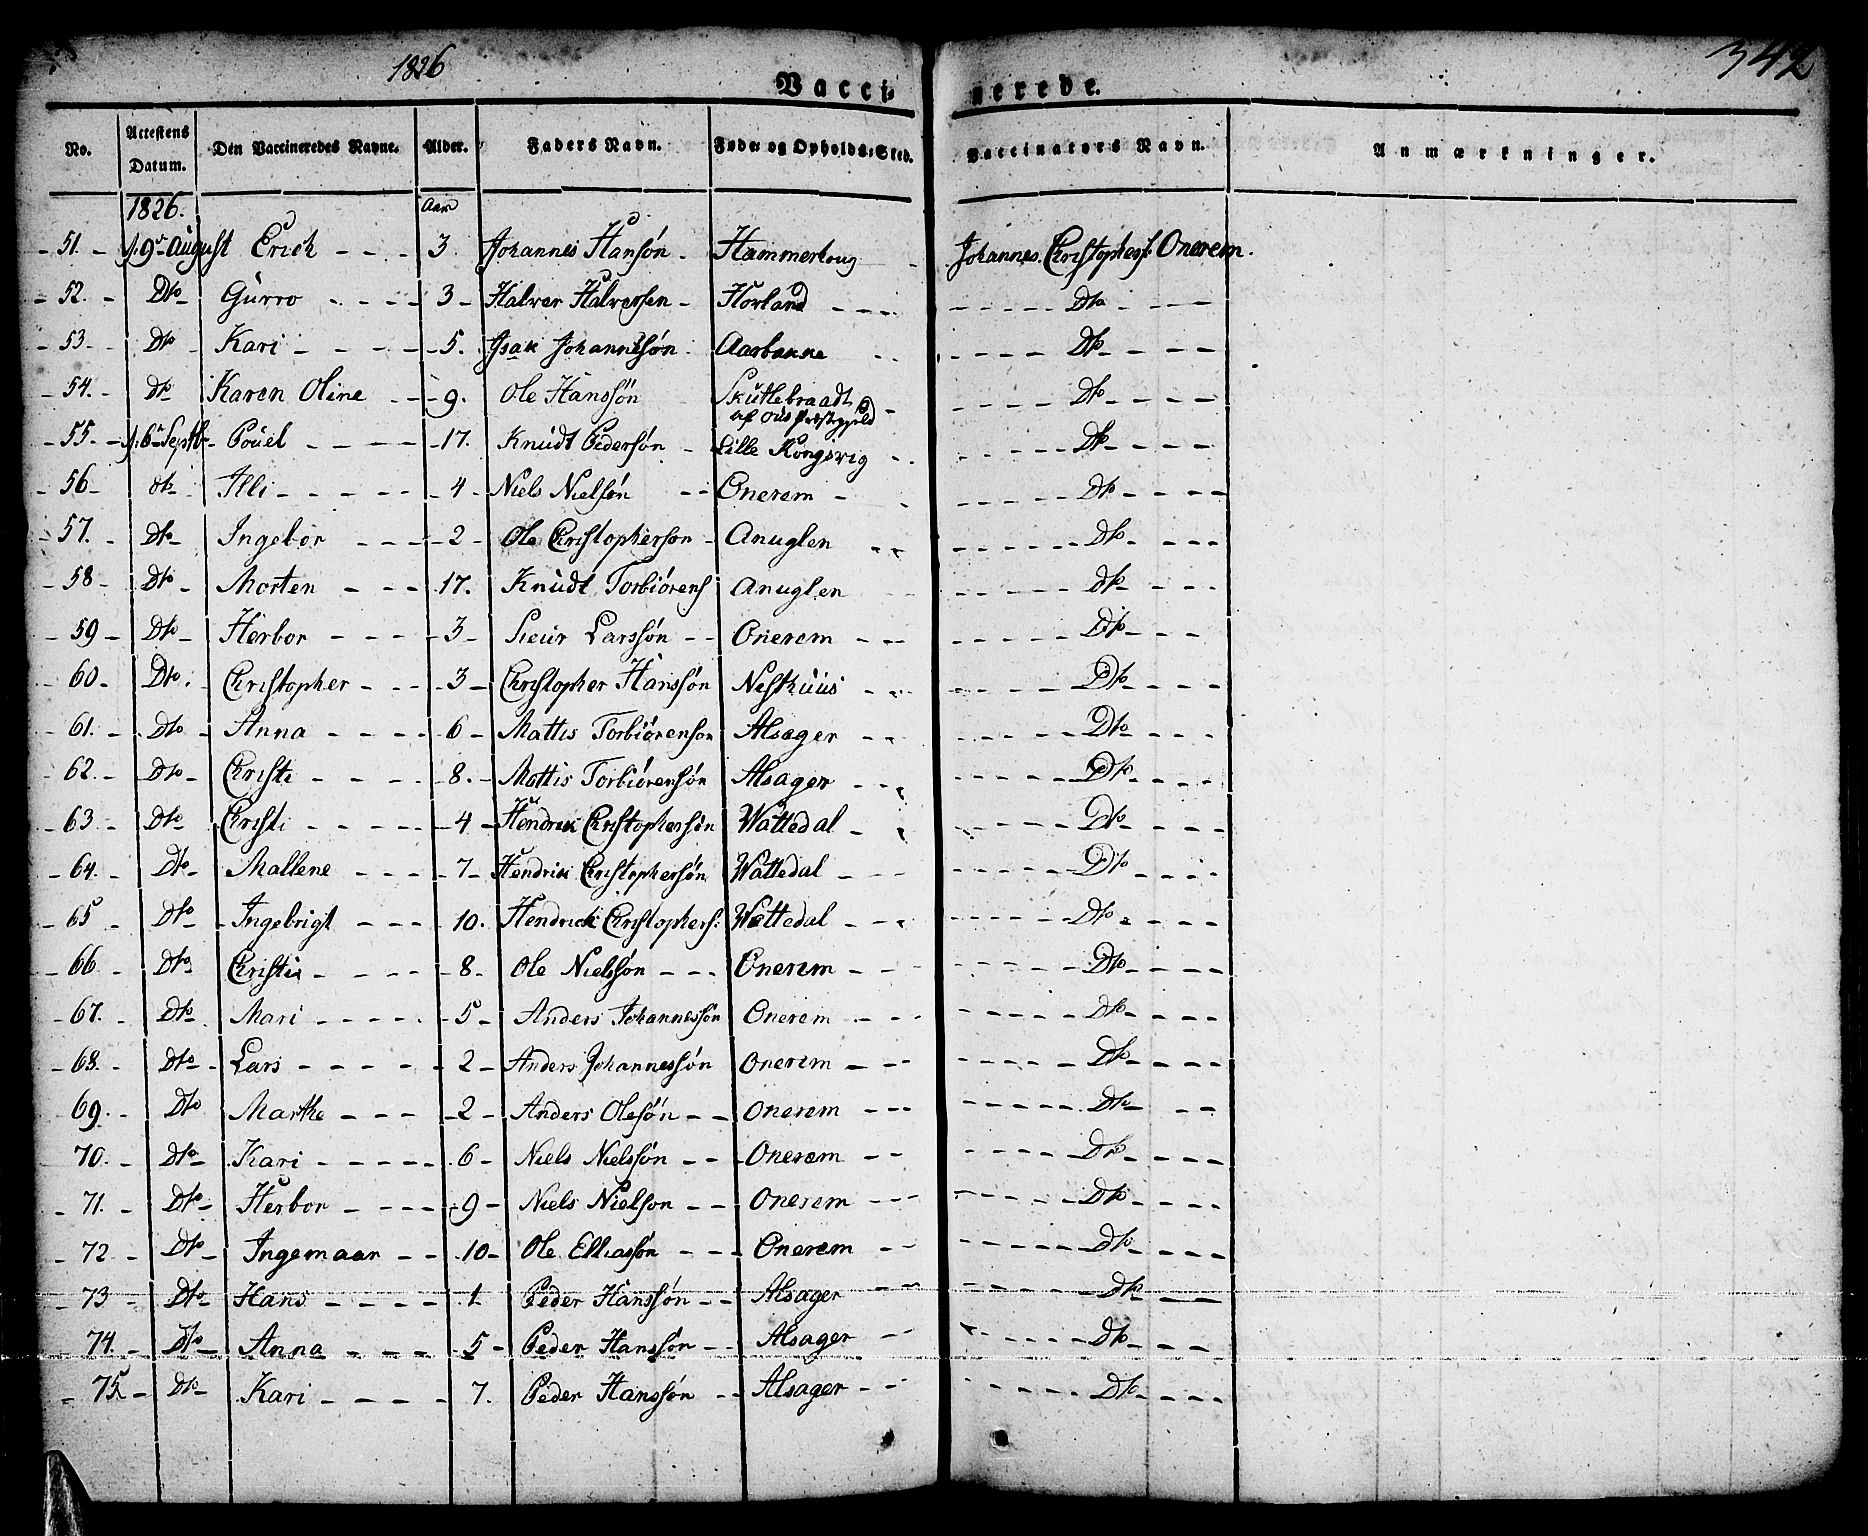 1826
342
Vacci- nerede.
No. Attestens Datum. Den Vaccineredes Navne. Alder. Faders Navn. Føde- og Opholds-Sted. Vaccinators Navn. Anmærkninger.
1826. Aar
- 51. - d. 9de August Erich - - - 3. Johannes Hansøn - Hammerhoug - Johannes Christophers: Onerem.
- 52. - Dto - Gurro - - - - 3 - Halver Halversen - Horland - - - - - - - - Dto - - -
- 53. - Dto - Kari - - - - - 5. Isak Johannesøn. Aarbakke - - - - - - Dto - - - -
- 54. - Dto Karen Oline - - 9. Ole Hanssøn Skuttebraadt - - - - - - Dto - - - -
af Ous Præstegjeld
- 55. - d. 6te Septbr - Pouel - - - - - 17. Knudt Pedersøn - Lille Kongsvig - - - - - - - Dto - - - -
- 56 - dto - Illi - - - - - - 4 - Niels Nielsøn - - Onerem - - - - - - Dto - - - -
- 57. - Dto - Ingebor - - - - 2 - Ole Christophersøn - Anuglen - - - - - - - Dto - - - -
- 58 - Dto - Morten - - - 17. Knudt Torbiørens Anuglen - - - - - - dto - - -
- 59 - Dto - Herbor - - - - 3 - Sieur Larssøn - - Onerem - - - - - - - - Dto - - - -
- 60 - Dto. - Christopher - - - 3 - Christopher Hanssøn Neshuus - - - - - - - Dto - - - -
- 61. - Dto - Anna - - - - 6 - Mattis Torbiørensøn Alsager - - - - - - - Dto - - - -
- 62. - Dto - Christi - - - - 8. - Mattis Torbiørensøn Alsager - - - - - - - - Dto - - - -
- 63 - Dto - Christi - - - - - 4 - Hendrik Christophersøn Wattedal - - - - - - Dto - - - -
- 64. - Dto - Mallene - - - 7 - Hendrik Christophersøn Wattedal - - - - - - - - Dto - - - -
- 65 - Dto - Ingebrigt - - - 10. Hendrick Christophers: Wattedal - - - - - - - - Dto - - - -
- 66 - Dto Christi - - - - - 8 - Ole Nielsøn - - - Onerem - - - - - - - - Dto - - - -
- 67. - Dto - Mari - - - - - 5 - Anders Johannessøn Onerem - - - - - - - Dto - - - -
- 68. - Dto - Lars - - - - - 2 - Anders Johannessøn Onerem - - - - - - - Dto - - - -
69. - Dto Marthe - - - - 2 - Anders Olesøn - - Onerem - - - - - - - - Dto - - -
- 70. - Dto - Kari - - - - - 6 - Niels Nielssøn - - - Onerem - - - - - - - Dto - - - -
- 71. - Dto - Herbor - - - - 9 - Niels Nielsøn - - Onerem - - - - - - - - Dto - - - -
- 72 - Dto - Ingemaar - - 10 - Ole Elliassøn - - - Onerem - - - - - - - Dto - - - -
- 73 - Dto - Hans - - - - 1. Peder Hanssøn - - Alsager - - - - - - - Dto - - -
- 74. Dto - Anna - - - - 5 - Peder Hanssøn - - Alsager - - - - - - - Dto - - -
- 75. - Dto - Kari - - - - 7. Peder Hanssøn - - Alsager - - - - - - - Dto - - - -